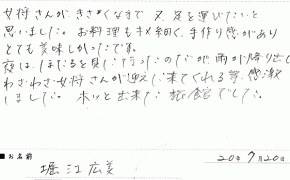 女将さんが、きさくなまで又、足を運びたいと
思いました。お料理もキメ細く、手作り感があり
とても美味しかったです。
夜は、ほたるを見に行ったのだが雨が降り出し
わざわざ女将さんが迎えに来てくれる等、感激
しました。ホッと出来た旅館でした。
■お名前
堀江広美
20年7月20日